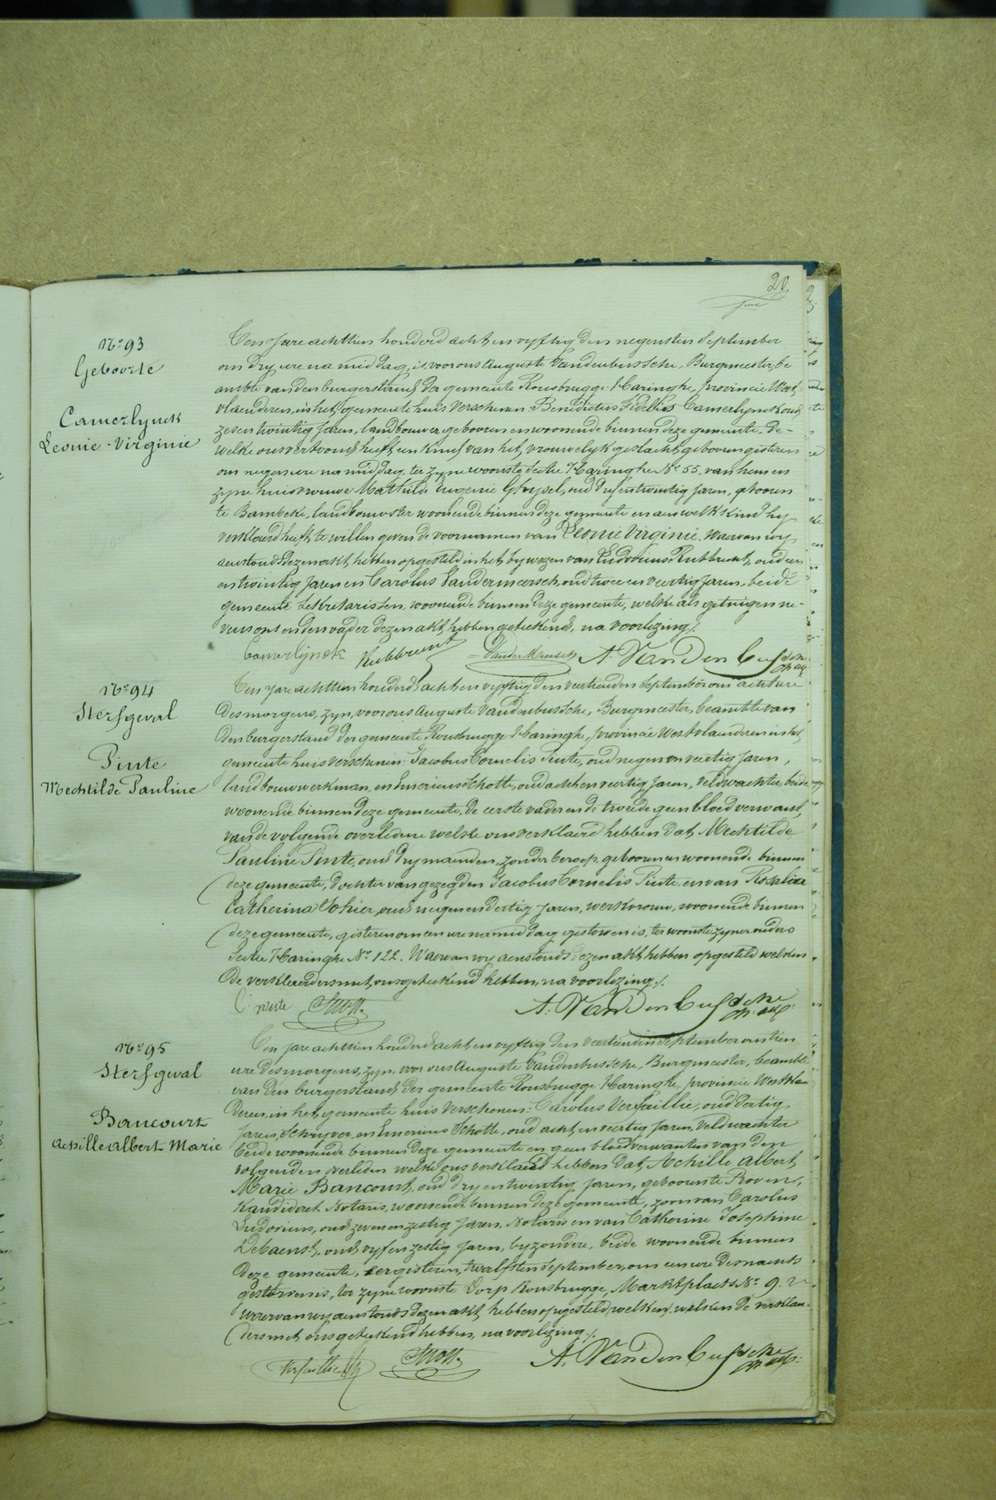 20
N° 93
Geboorte
Camerlynck
Leonie Virginie
Een jare achttien honderd acht en vyftig den negensten September
om dry ure na middag, is voor ons Auguste Vandenbussche, Burgmeester, be
ambte van den burgerstand der gemeente Rousbrugge Haringhe, provincie West
vlaenderen, in het gemeente huis verschenen Benedictus Fidelis Camerlynck oud
zes en twintig jaren, landbouwer, geboren en woonende binnen deze gemeente, De-
welke ons vertoond heeft een kind van het vrouwelyk geslacht geboren gisteren
om negen ure na middag, ter zyne woonste sectie Haringhe N° 55, van hem en
zyne huisvrouwe Mathilde Eugenie Gheysel, oud dry en twintig jaren, geboren
te Bambeke, landbouwster woonende binnen deze gemeente en aen welk kind hy
verklaerd heeft te willen geven de voornamen van Leonie Virginie, waervan wy
aenstonds dezen akt hebben opgesteld in het bywezen van Ludovicus Rubbrecht, oud een
en twintig jaren en Carolus Vandermeersch oud twee en veertig jaren, beide
gemeente sekretarissen, woonende binnen deze gemeente, welke als getuigen ne-
vens ons en den vader dezen akt hebben geteekend, na voorlezing./.
Camerlynck Rubbrecht Vandermeersch A. VanDenBussche
N° 94
Sterfgeval
Pinte
Mechtilde Pauline
Een jare achttien honderd acht en vyftig den veerthienden September om acht ure
des morgens, zyn, voor ons Auguste Vandenbussche, Burgmeester, beambte van
den burgerstand der gemeente Rousbrugge Haringhe, provincie Westvlaenderen in het
gemeente huis verschenen Jacobus Cornelis Pinte, oud negen en veertig jaren,
landbouwwerkman, en Emerius Schotte, oud acht en veertig jaren, veldwachter beide
woonende binnen deze gemeente, de eerste vader en de tweede geen bloedverwant
van de volgende overledene welke ons verklaerd hebben dat, Mechtilde
Pauline Pinte, oud dry maenden, zonder beroep, geboren en woonende binnen
deze gemeente, dochter van gezegden Jacobus Cornelis Pinte, en van Rosalia
Catherina Sohier, oud negen en dertig jaren, werkvrouw, woonende binnen
deze gemeente, gisteren om een ure namiddag gestorven is, ter woonste zyner ouders
sectie Haringhe N° 122. Waervan wy aenstonds dezen akt hebben opgesteld welken
de verklaerders met ons geteekend hebben, na voorlezing./.
C. pinte A. VanDenBussche
N° 95
Sterfgeval
Bancourt
Achille Albert Marie
Een jare achttien honderd acht en vyftig den veerthienden September om tien
ure des morgens, zyn, voor ons Auguste Vandenbussche, Burgmeester, beambte
van den burgerstand der gemeente Rousbrugge Haringhe, provincie Westvlaen
deren, in het gemeente huis verschenen: Carolus Versaillie, oud dertig
jaren, schryver, en Emerius Schotte, oud acht en veertig jaren, veldwachter
beide woonende binnen deze gemeente en geen bloedverwanten van den
volgenden overleden welke ons verklaerd hebben dat, Achille Albert
Marie Bancourt, oud dry en twintig jaren, geboren te Proven,
Kandidaet Notaris, woonende binnen deze gemeente, zoon van Carolus
Ludovicus, oud zeven en zestig jaren, Notaris en van Catherine Josephine
Debaene, oud vyf en zestig jaren, byzondere, beide woonende binnen
deze gemeente, eergisteren, twaelfsten September, om een ure des nachts
gestorven is, ter zyne woonste Dorp Rousbrugge, Marktplaets N° 9.
waervan wy aenstonds dezen akt hebben opgesteld, welken de verklaer-
ders met ons geteekend hebben, na voorlezing./.
A. VanDenBussche